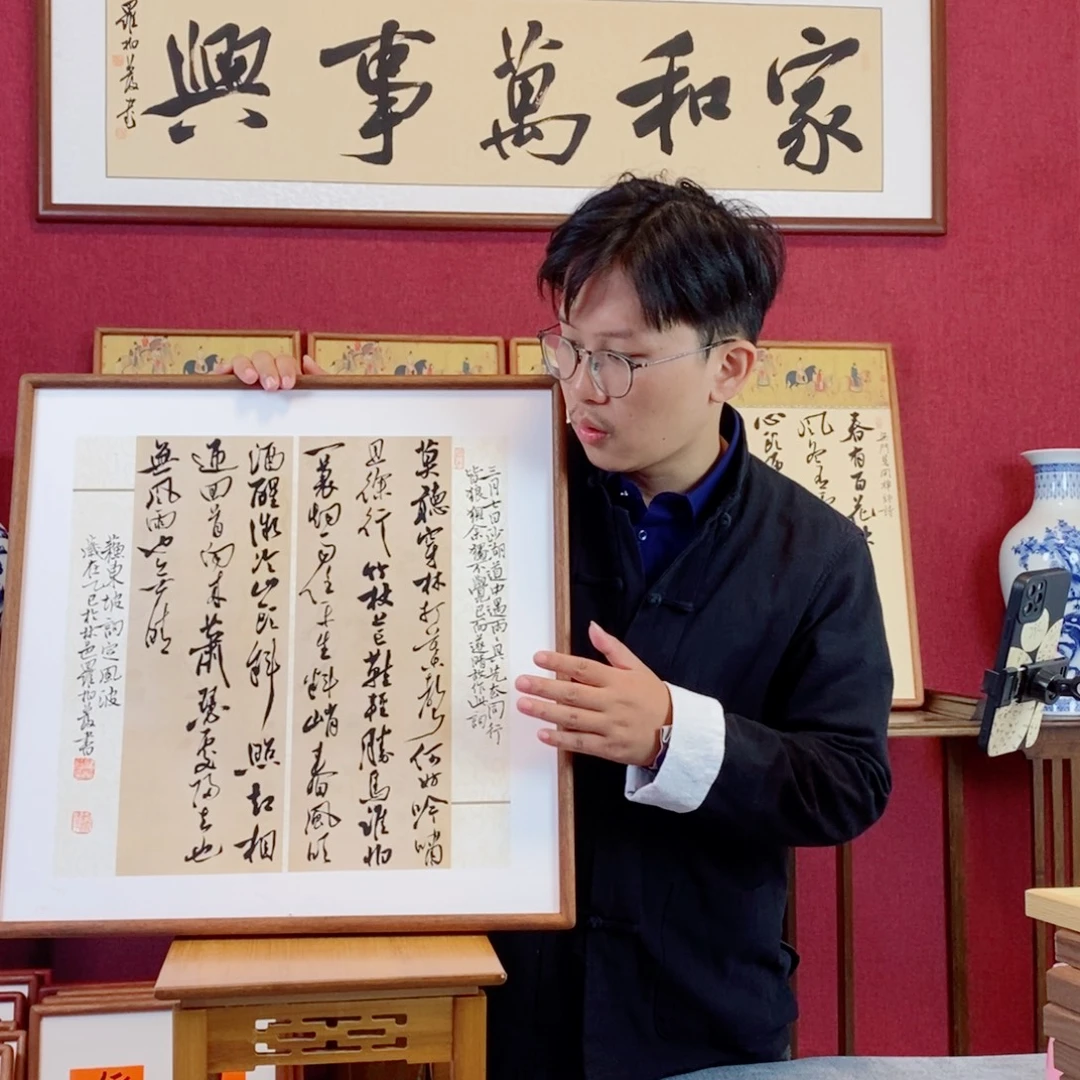 家和萬事興
羅柏書
三月七日沙湖道中遇雨雨具先去同行
皆狼狽余獨不覺已而遂晴故作此詞
莫聽穿林打葉聲何妨吟嘯
且徐行竹杖芒鞋輕勝馬誰怕
一蓑烟雨任平生料峭春風吹
酒醒微冷山頭斜照却相
迎回首向來蕭瑟處歸去也
無風雨也無晴
蘇東坡詞定風波
歲在乙巳於林邑羅柏書
無門慧開禪師詩
春有百花
風冬有
心頭